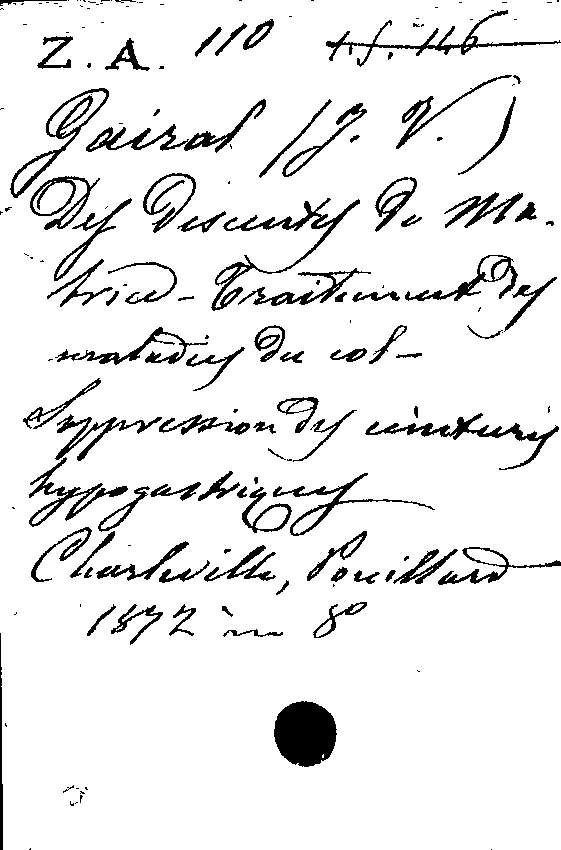 Z. A. 110 t. f. 146
Gairal (J. V.)
Des Descentes de Ma-
trice - Traitement des
maladies du col -
Suppression des ceintures
hypogastriques
Charleville, Pouillard
1872 in 8°